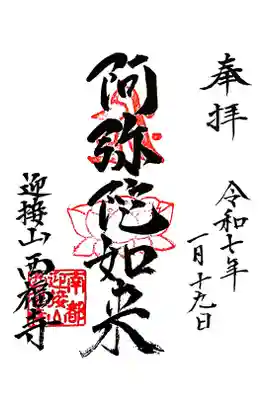 奉拝
令和七年
一月十九日
阿弥陀如来
迎接山 西福寺
南都
迎接山